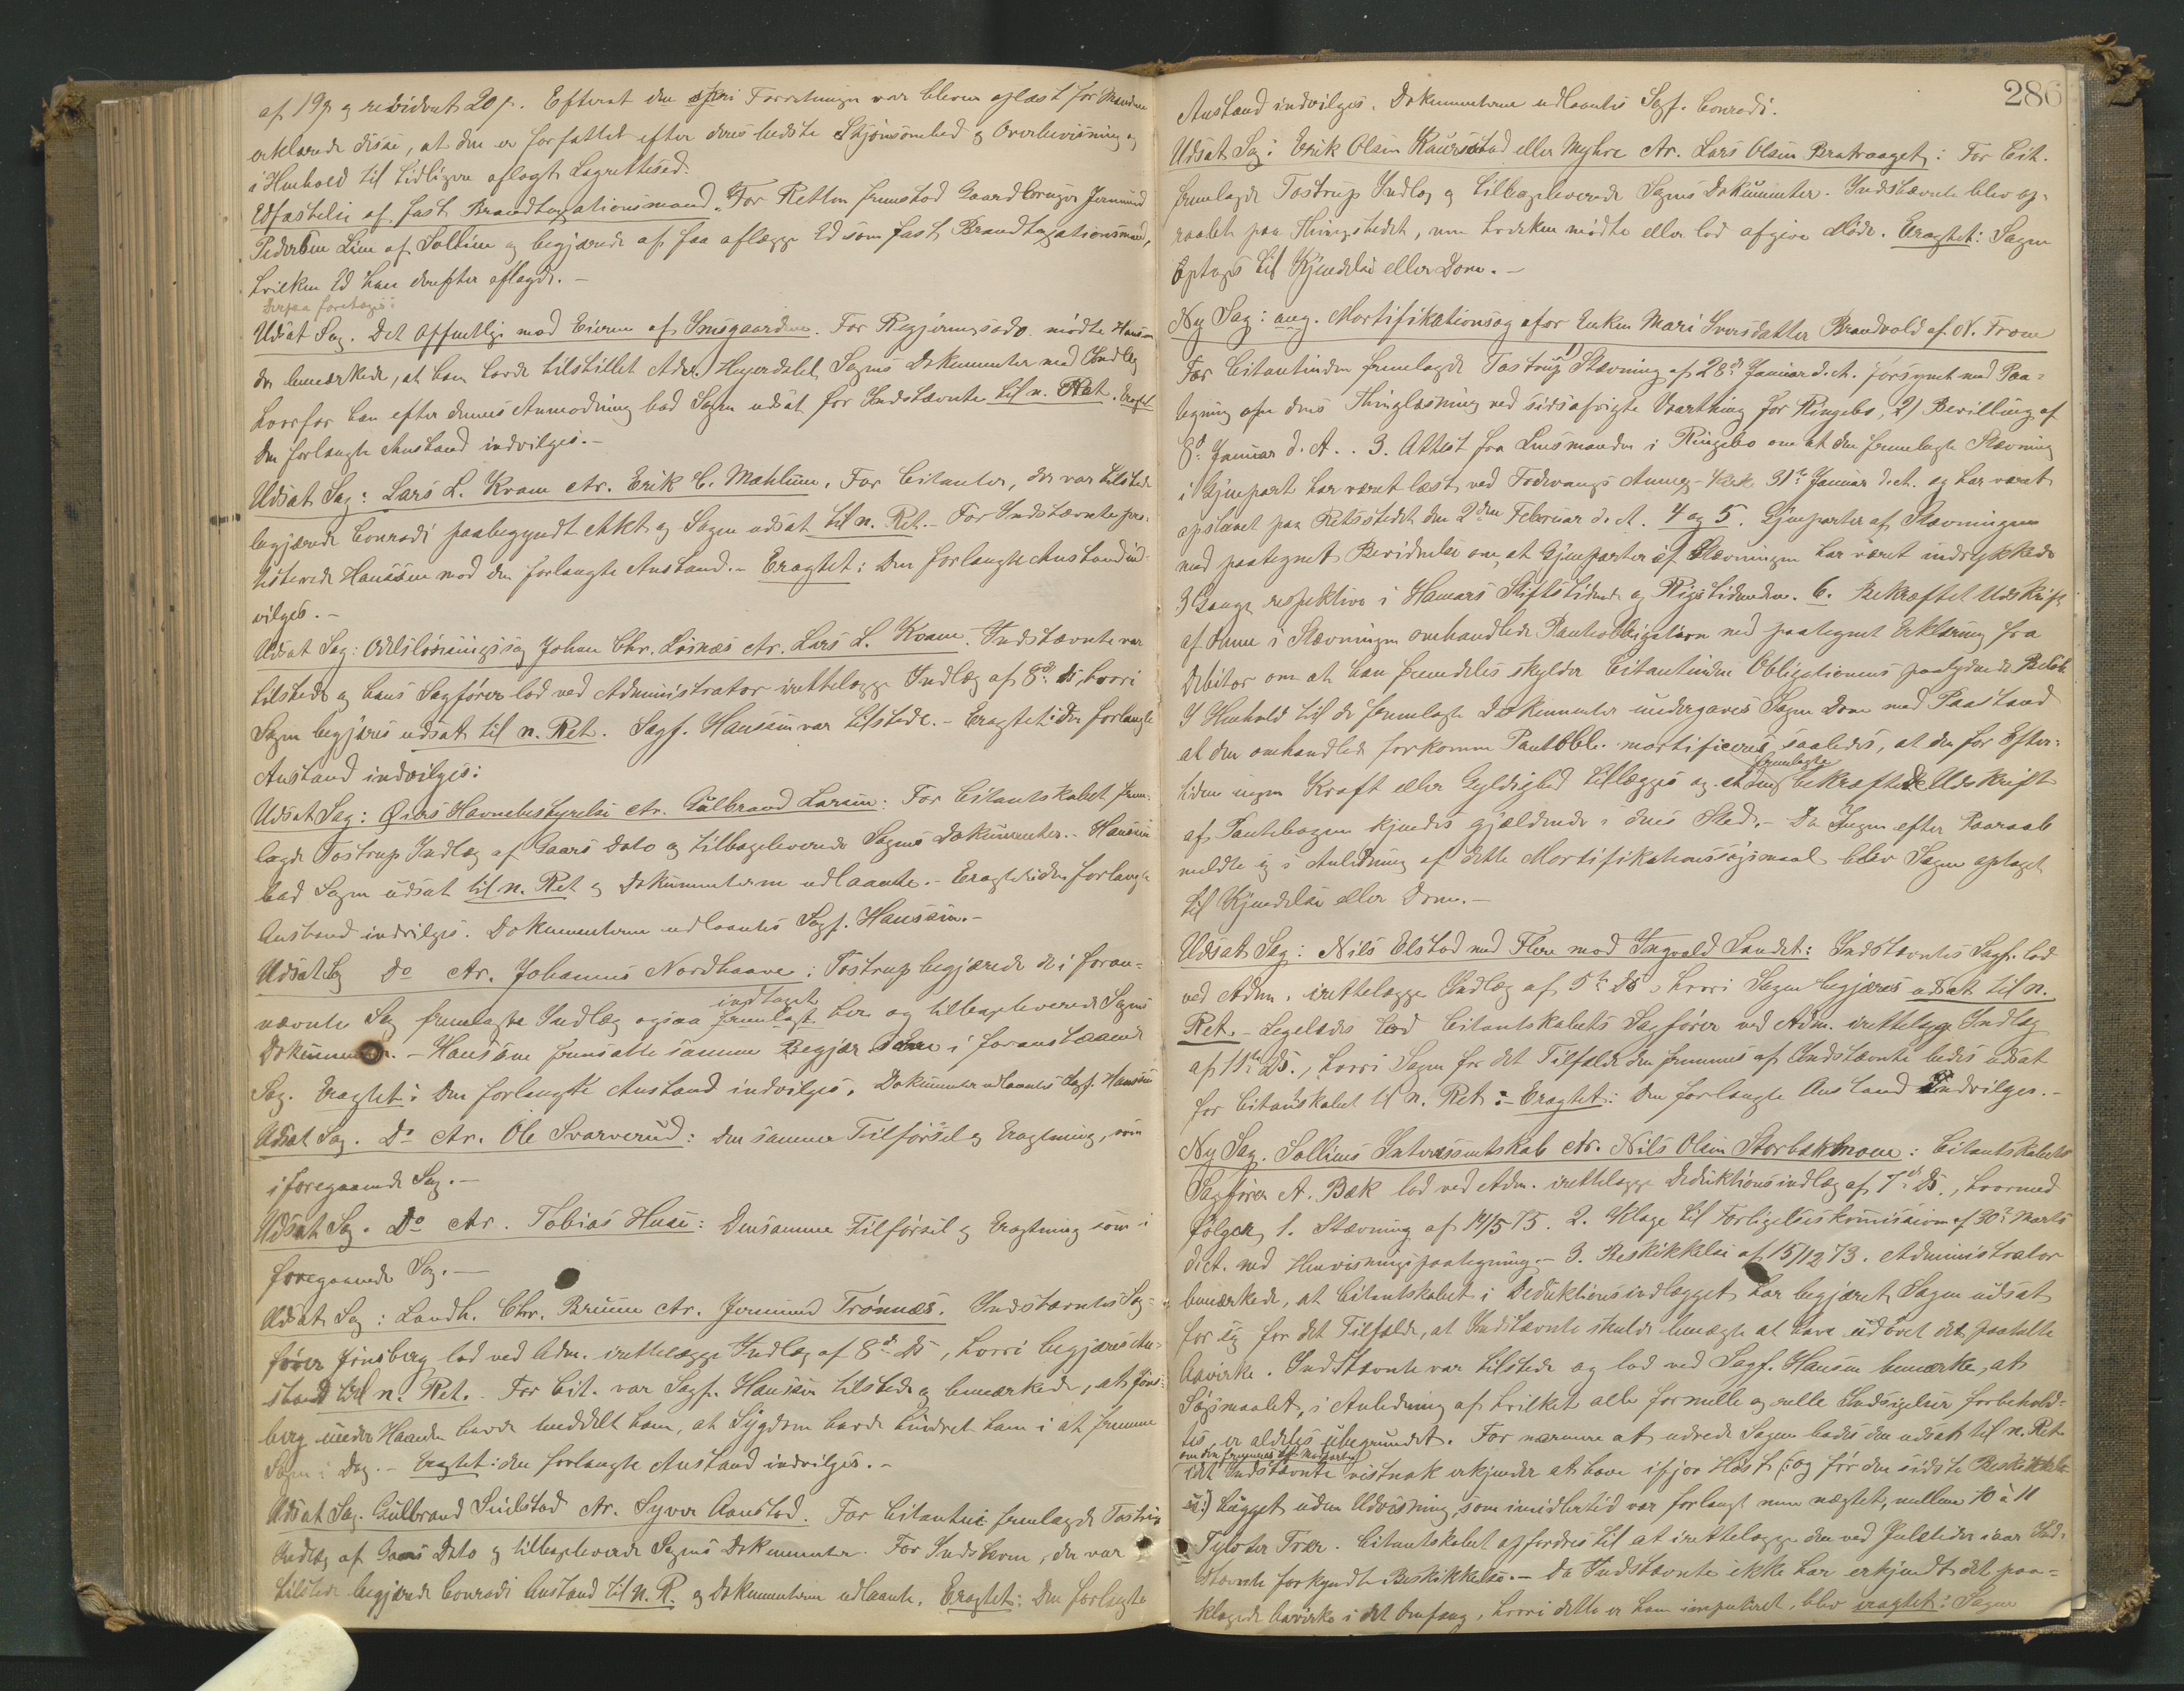 af 19 p og residvent 20 p. Efterat den Forretningen var bleven oplæst for Mændene
erklærede disse, at den er forfattet efter deres bedste Skjönsomhed og Overbevisning og
i Henhold til tidligere aflagt Lagrettesed.
Edfæstelse af fast Brandtaxationsmand. For Retten fremstod Gaardbruger Jermund
Pedersen Lien af Sollien og begjærede at faa aflægge Ed som fast Brandtaxationsmand,
hvilken Ed han derefter aflagde. –
Derpaa foretoges:
Udsat Sag. Det Offentlige mod Eieren af Smsgaarden. For Regjeringsadv. mödte Hansen
der bemærkede, at han havde tilstillet Adv. Heyerdahl Sagens Dokumenter med Indlæg
hvorfor han efter dennes Anmodning bad Sagen udsat for Indstævnte til n. Ret. Eragtet
Den forlangte Anstand indvilges. –
Udsat Sag: Lars L. Kvam ctr. Erik C. Mæhlum. For Citanten, der var tilstede
begjærede Conradi paabegyndt Akt og Sagen udsat til n. Ret. – For Indstævnte pro-
testerede Hanssen mod den forlangte Anstand. – Eragtet: Den forlangte Anstand ind-
vilges. –
Udsat Sag: Odelslösningssag Johan Chr. Losnæs ctr. Lars L. Kvam. Indstævnte var
tilstede og hans Sagförer lod ved Administrator irettelægge Indlæg af 8de ds, hvori
Sagen begjæres udsat til n. Ret. Sagf. Hanssen var tilstede. – Eragtet: Den forlangte
Anstand indvilges:
Udsat Sag: Öiers Havnebestyrelse ctr. Gulbrand Larsen: For Citantskabet frem-
lagde Tostrup Indlæg af Gaars Dato og tilbageleverede Sagens Dokumenter. – Hanssen
bad Sagen udsat til n. Ret og Dokumenterne udlaante. – Eragtet: den forlangte
Anstand indvilges. Dokumenterne udlaantes Sagf. Hanssen. –
Udsat Sag Do ctr. Johannes Nordhaave: Tostrup begjærede det i foran-
indtaget
nævnte Sag fremlagte Indlæg ogsaa fremlagt her og tilbageleverede Sagens
Dokumenter. – Hanssen fremsatte samme Begjær som i foranstaaende
Sag. Eragtet: Den forlangte Anstand indvilges. Dokumenter udlaantes Sagf. Hanssen
Udsat Sag. Do ctr. Ole Svarverud: Den samme Tilförsel og Eragtning, som
i foregaaende Sag. –
Udsat Sag. Do ctr. Tobias Huse: Den samme Tilförsel og Eragtning som i
foregaaende Sag. –
Udsat Sag: Landh. Chr. Bruun ctr. Jermund Trönnæs. Indstævntes Sag-
förer Jönsberg lod ved Adm. irettelægge Indlæg af 8de ds, hvori begjæres An-
stand til n. Ret. For Cit. var Sagf. Hanssen tilstede og bemærkede, at Jöns-
berg under Haanden havde meddelt ham, at Sygdom havde hindret ham i at fremme
Sagen i Dag. – Eragtet: den forlangte Anstand indvilges. –
Udsat Sag. Gulbrand Suilstad ctr. Syver Aanstad. For Citanten fremlagde Tostrup
Indlæg af Gaars Dato og tilbageleverede Sagens Dokumenter. For Indstævnte, der var
tilstede begjærede Conradi Anstand til n. R. og Dokumenterne udlaante. Eragtet: Den forlangte
286
Anstand indvilges. Dokumenterne udlaantes Sagf. Conradi.
Udsat Sag: Erik Olsen Kaurstad eller Myhre ctr. Lars Olsen Bratvaaget: For Cit.
fremlagde Tostrup Indlæg og tilbageleverede Sagens Dokumenter. Indstævnte blev op-
raabt paa Thingstedet, men hverken mödte eller lod afgive Möde. Eragtet: Sagen
Optages til Kjendelse eller Dom. –
Ny Sag: ang. Mortifikationssag for Enken Mari Iversdatter Brandvold af N. Fron
For Citantinden fremlagde Tostrup 1) Stævning af 28de Januar d. A. forsynet med Paa-
tegning om dens Thinglæsning ved sidsafvigte Vaarthing for Ringebo, 2) Bevilling af
8de Januar d. A. . 3. Attest fra Lensmanden i Ringebo om at den fremlagte Stævning
i Gjenpart har været læst ved Fodvangs Annex-Kirke 31te Januar d. A. og har været
opslaaet paa Retsstedet den 2den Februar d. A. 4 og 5. Gjenparter af Stævningen
med paategnet Bevidnelse om, at Gjenparter af Stævningen har været indrykkede
3 Gange respektive i Hamars Stiftstidende og Rigstidenden. 6. Bekræftet Udskrift
af denne i Stævningen omhandlede Panteobligation med paategnet Erklæring fra
Debitor om at han fremdeles skylder Citantinden Obligationens paalydende Belöb.
I Henhold til de fremlagte Dokumenter indergaves Sagen Dom med Paastand
at den omhandlede forkomne Pantobl. mortificeres saaledes, at den for Efter-
fremlagte
tiden ingen Kraft eller Gyldighed tillægges og at den bekræftede Udskrift
af Pantebogen kjendes gjældende i dens Sted. – Da Ingen efter Paaraab
meldte sig i Anledning af dette Mortifikationssögsmaal blev Sagen optaget
til Kjendelse eller Dom. –
Udsat Sag: Nils Elstad med Flere mod Ingvald Sandet: Indstævntes Sagf. lod
ved Adm. irettelægge Indlæg af 5te ds, hvori Sagen begjæres udsat til n.
Ret. – Ligeledes lod Citantskabets Sagförer ved Adm. irettelægge Indlæg
af 11te ds., hvori Sagen for det Tilfælde den fremmes af Indstævnte bedes udsat
for Citantskabet til n. Ret: – Eragtet: Den forlangte Anstand Indvilges. –
Ny Sag. Solliens Interessentskab ctr. Nils Olsen Storbækmoen: Citantskabets
Sagförer A. Bæk lod ved Adm. irettelægge Deduktionsindlæg af 7de ds., hvormed
fölger 1. Stævning af 14/5 75. 2. Klage til Forligelseskommission af 30te Marts
d. A. med Henvisningspaategning. – 3. Beskikkelse af 15/12 73. Administrator
bemærkede, at Citantskabet i Deduktionsindlægget har begjæret Sagen udsat
for sig for det Tilfælde, at Indstævnte skulde benægte at have udövet det paatalte
Aavirke. Indstævnte var tilstede og lod ved Sagf. Hansen bemærke, at
Sögsmaalet, i Anledning af hvilket alle formelle og reelle Indsigelser forbehold-
tes er aldeles ubegrundet. For nærmere at udrede Sagen bades den udsat til n. Ret
om den fremmes af Modparten
idet Indstævnte vistnok erkjender at have ifjor Höst (: og för den sidste Beskikkel-
se :) hugget uden Udvisning, som imidlertid var forlangt men nægtet, mellem 10 à 11
Tylvter Trær. Citantskabet opfordres til at irettelægge den ved Juletider ivar Ind-
stævnte forkyndte Beskikkelse. – Da Indstævnte ikke har erkjendt det paa-
klagede Aavirke i det Omfang, hvori dette er ham imputeret, blev eragtet: Sagen